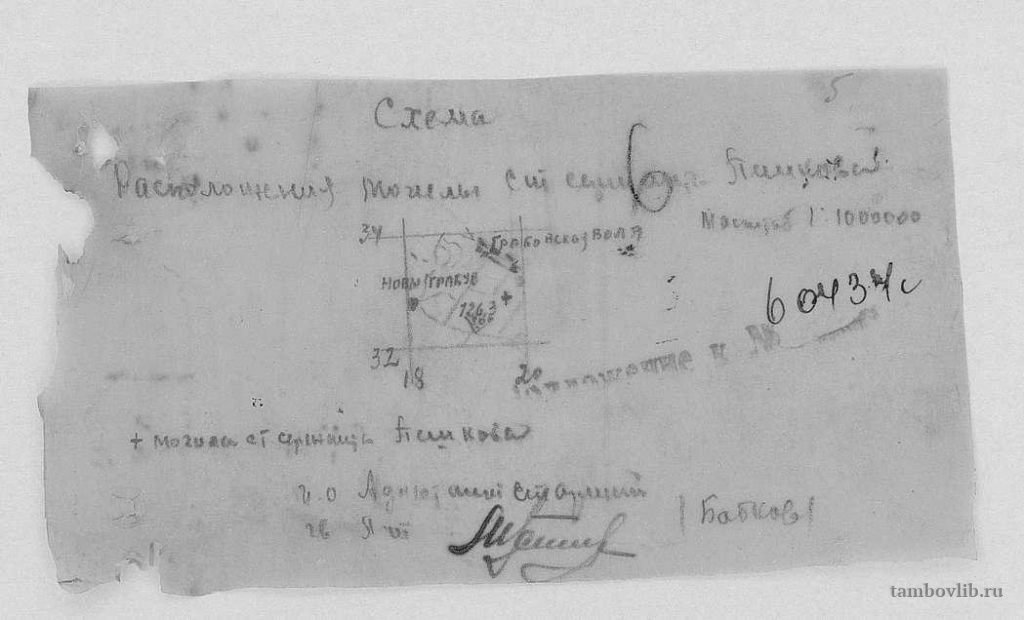 5
Схема
Расположения могилы ст сержанта Пашкова
Масштаб 1:1000000
34
Грабовска воля
Новы Грабув
126,3
32
18
20
60437с
Приложение к №
+ могила ст сержанта Пашкова
Адютант старший
гв
/Бабков/
tambovlib.ru